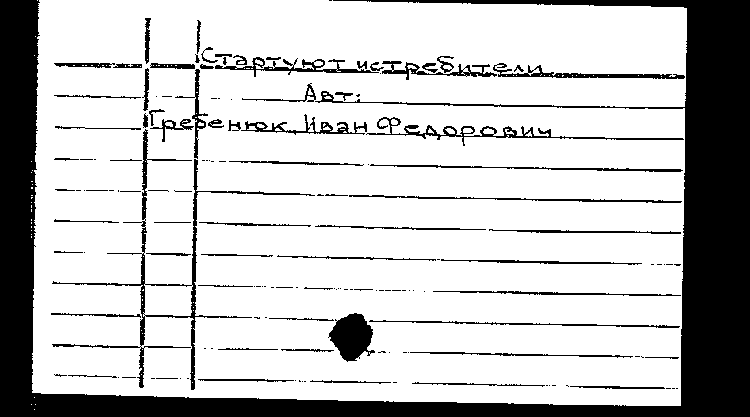 Стартуют истребители
Авт:
Гребенюк Иван Федорович